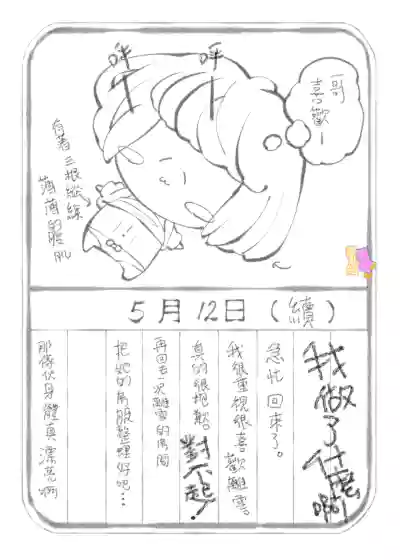 哥
喜歡ー
呼
呼
有着三根縱線
薄薄的腹肌
5月12日(續)
我做了什麼啊!
急忙回來了。
我很重視很喜歡。
真的很抱歉。對不起!
再回去一次的房間
把她的衣服整理好吧…
那傢伙身體真漂亮啊